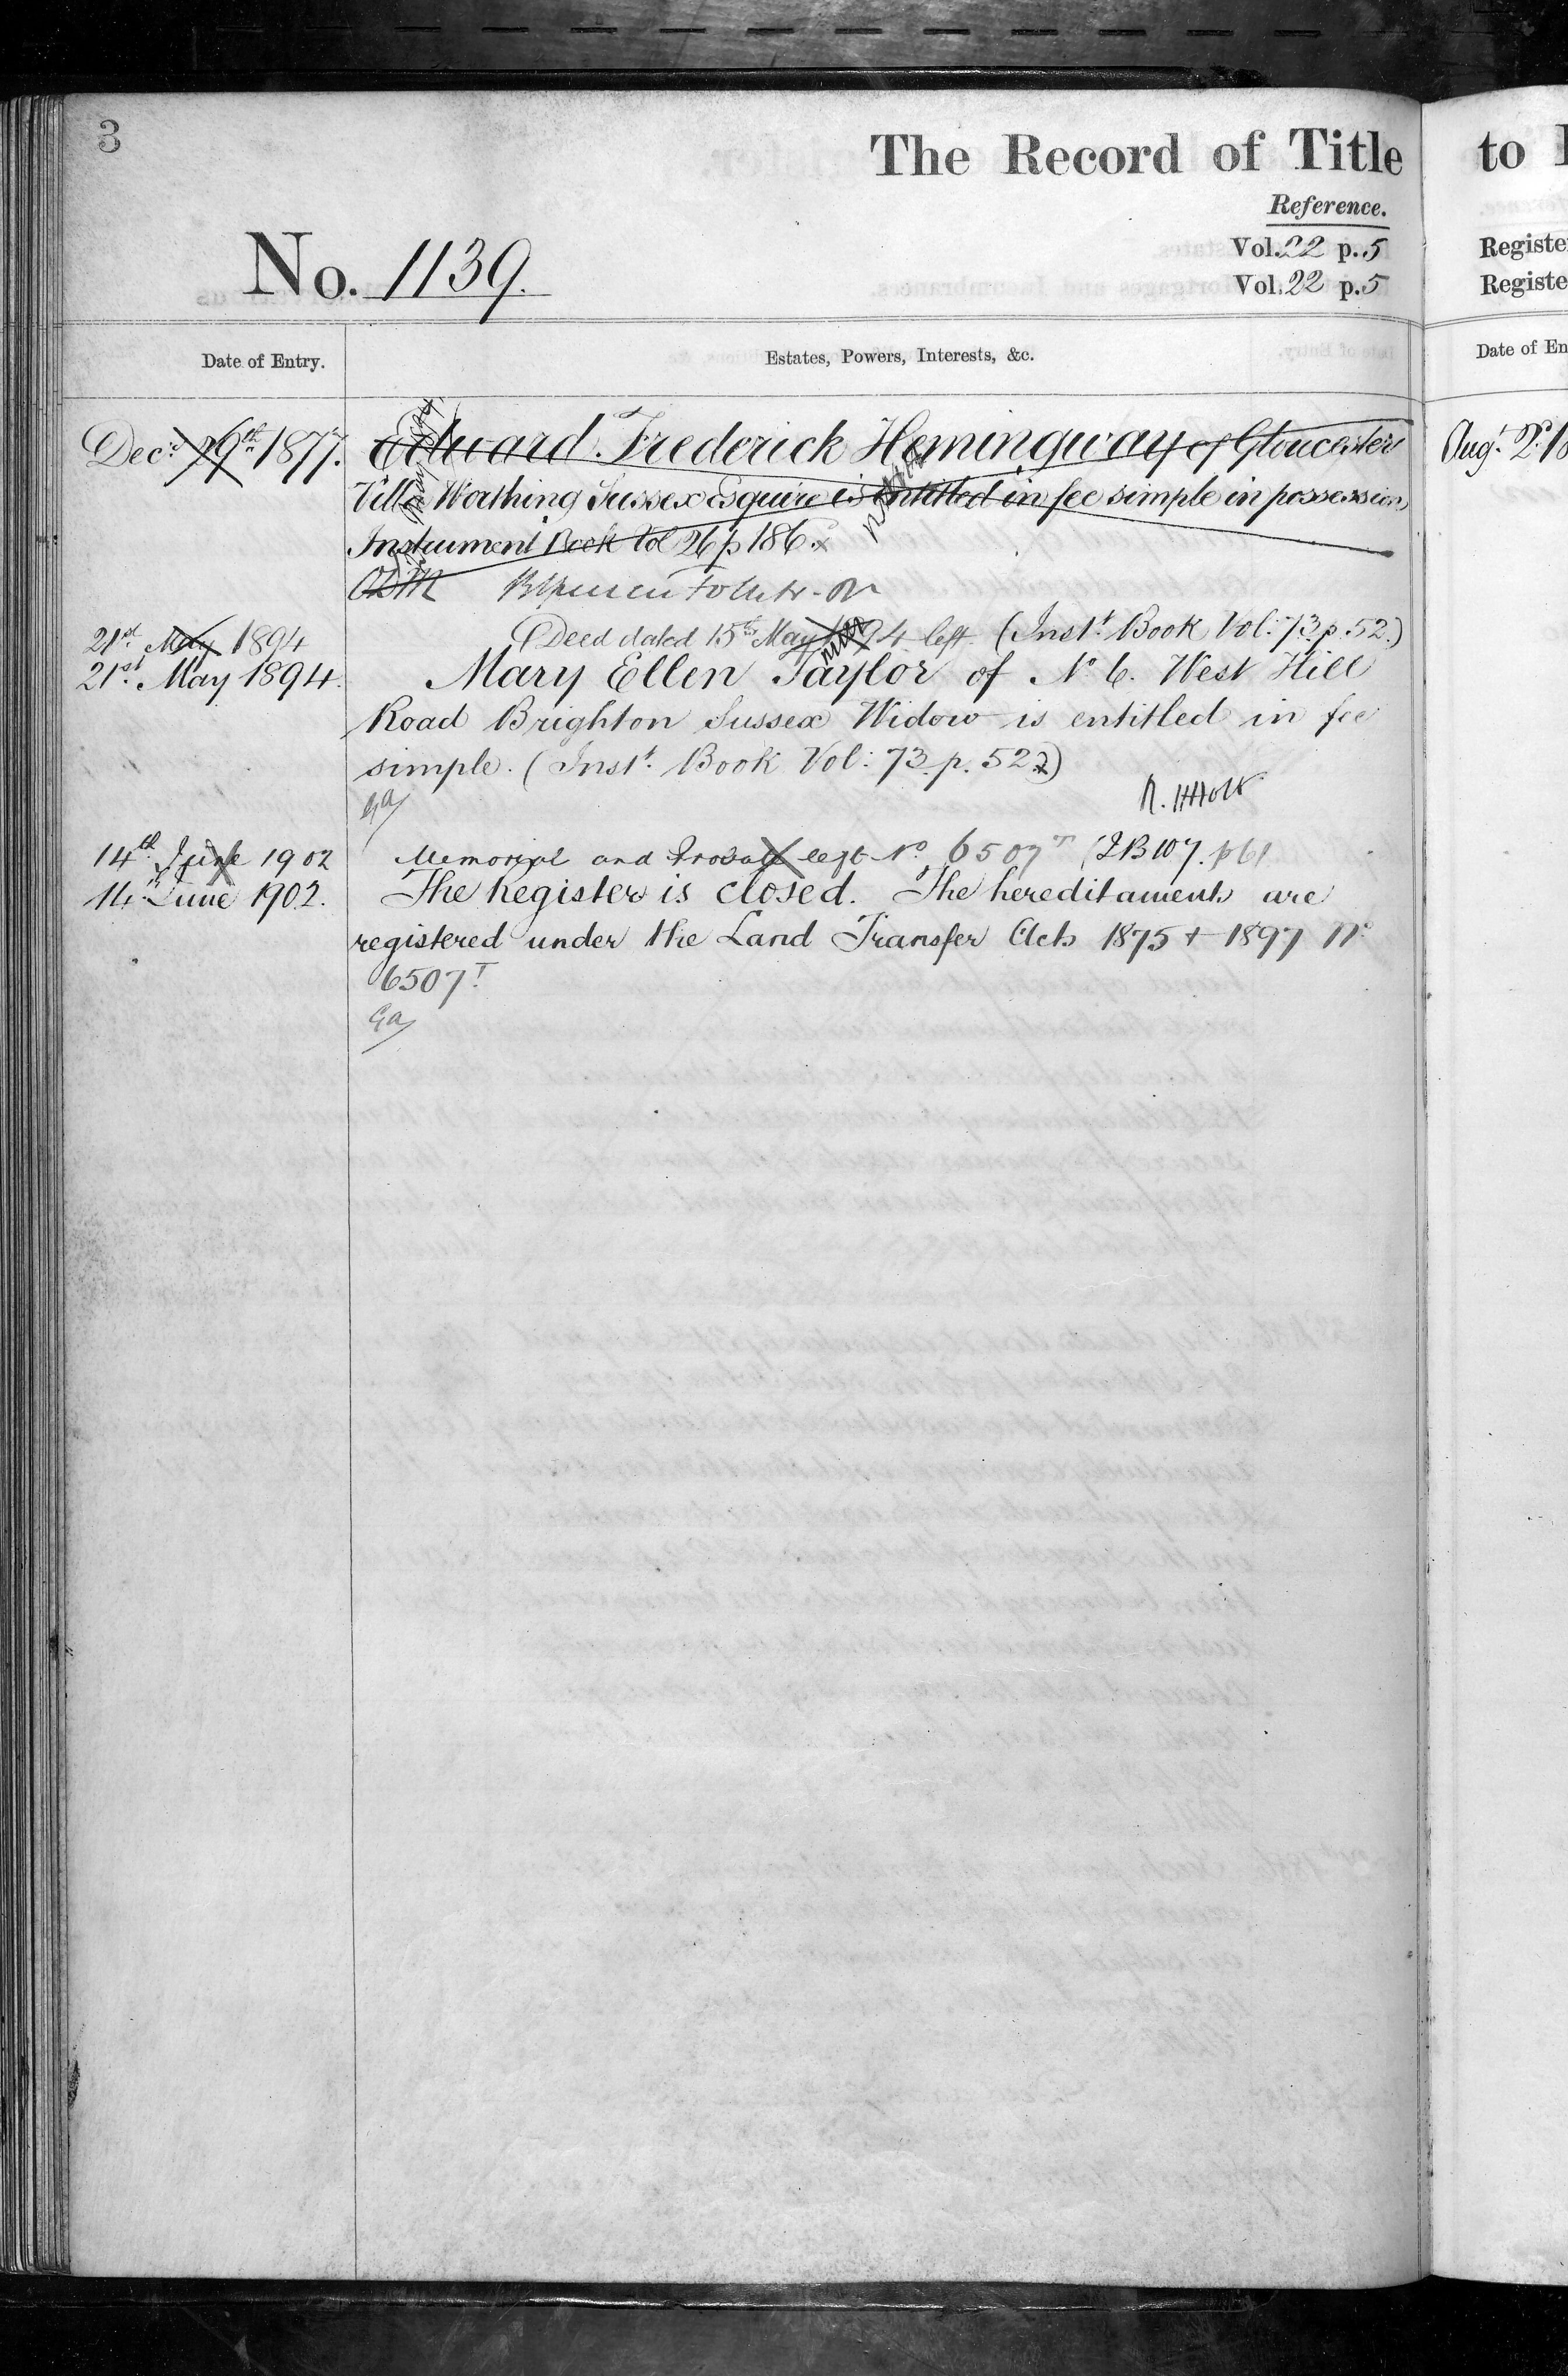 3
The Record of Title
to
Reference.
Vol. 22 p. 5
Vol. 22 p. 5
Registe
Registe
No. 1139.
Date of Entry.
Estates, Powers, Interests, &c.
Date of En
Dec.r 29th 1877.
Edward Frederick Hemingway of Gloucester
Villa Worthing Sussex Esquire is entitled in fee simple in possession
Instrument Book Vol 26 p 186.
Aug.t 2d 18
21st May 1894
Deed dated 15th May 1894 left. (Inst.t Book Vol: 73. p. 52.)
21st May 1894.
Mary Ellen Taylor of No. 6. West Hill
Road Brighton Sussex Widow is entitled in fee
simple. (Inst.t Book Vol: 73. p. 52.)
R. H Holt
14th June 1902
Memorial and Probate left No 6507 T (IB 107. p 61
14th June 1902.
The Register is closed. The hereditaments are
registered under the Land Transfer Acts 1875 + 1897 No
6507 T